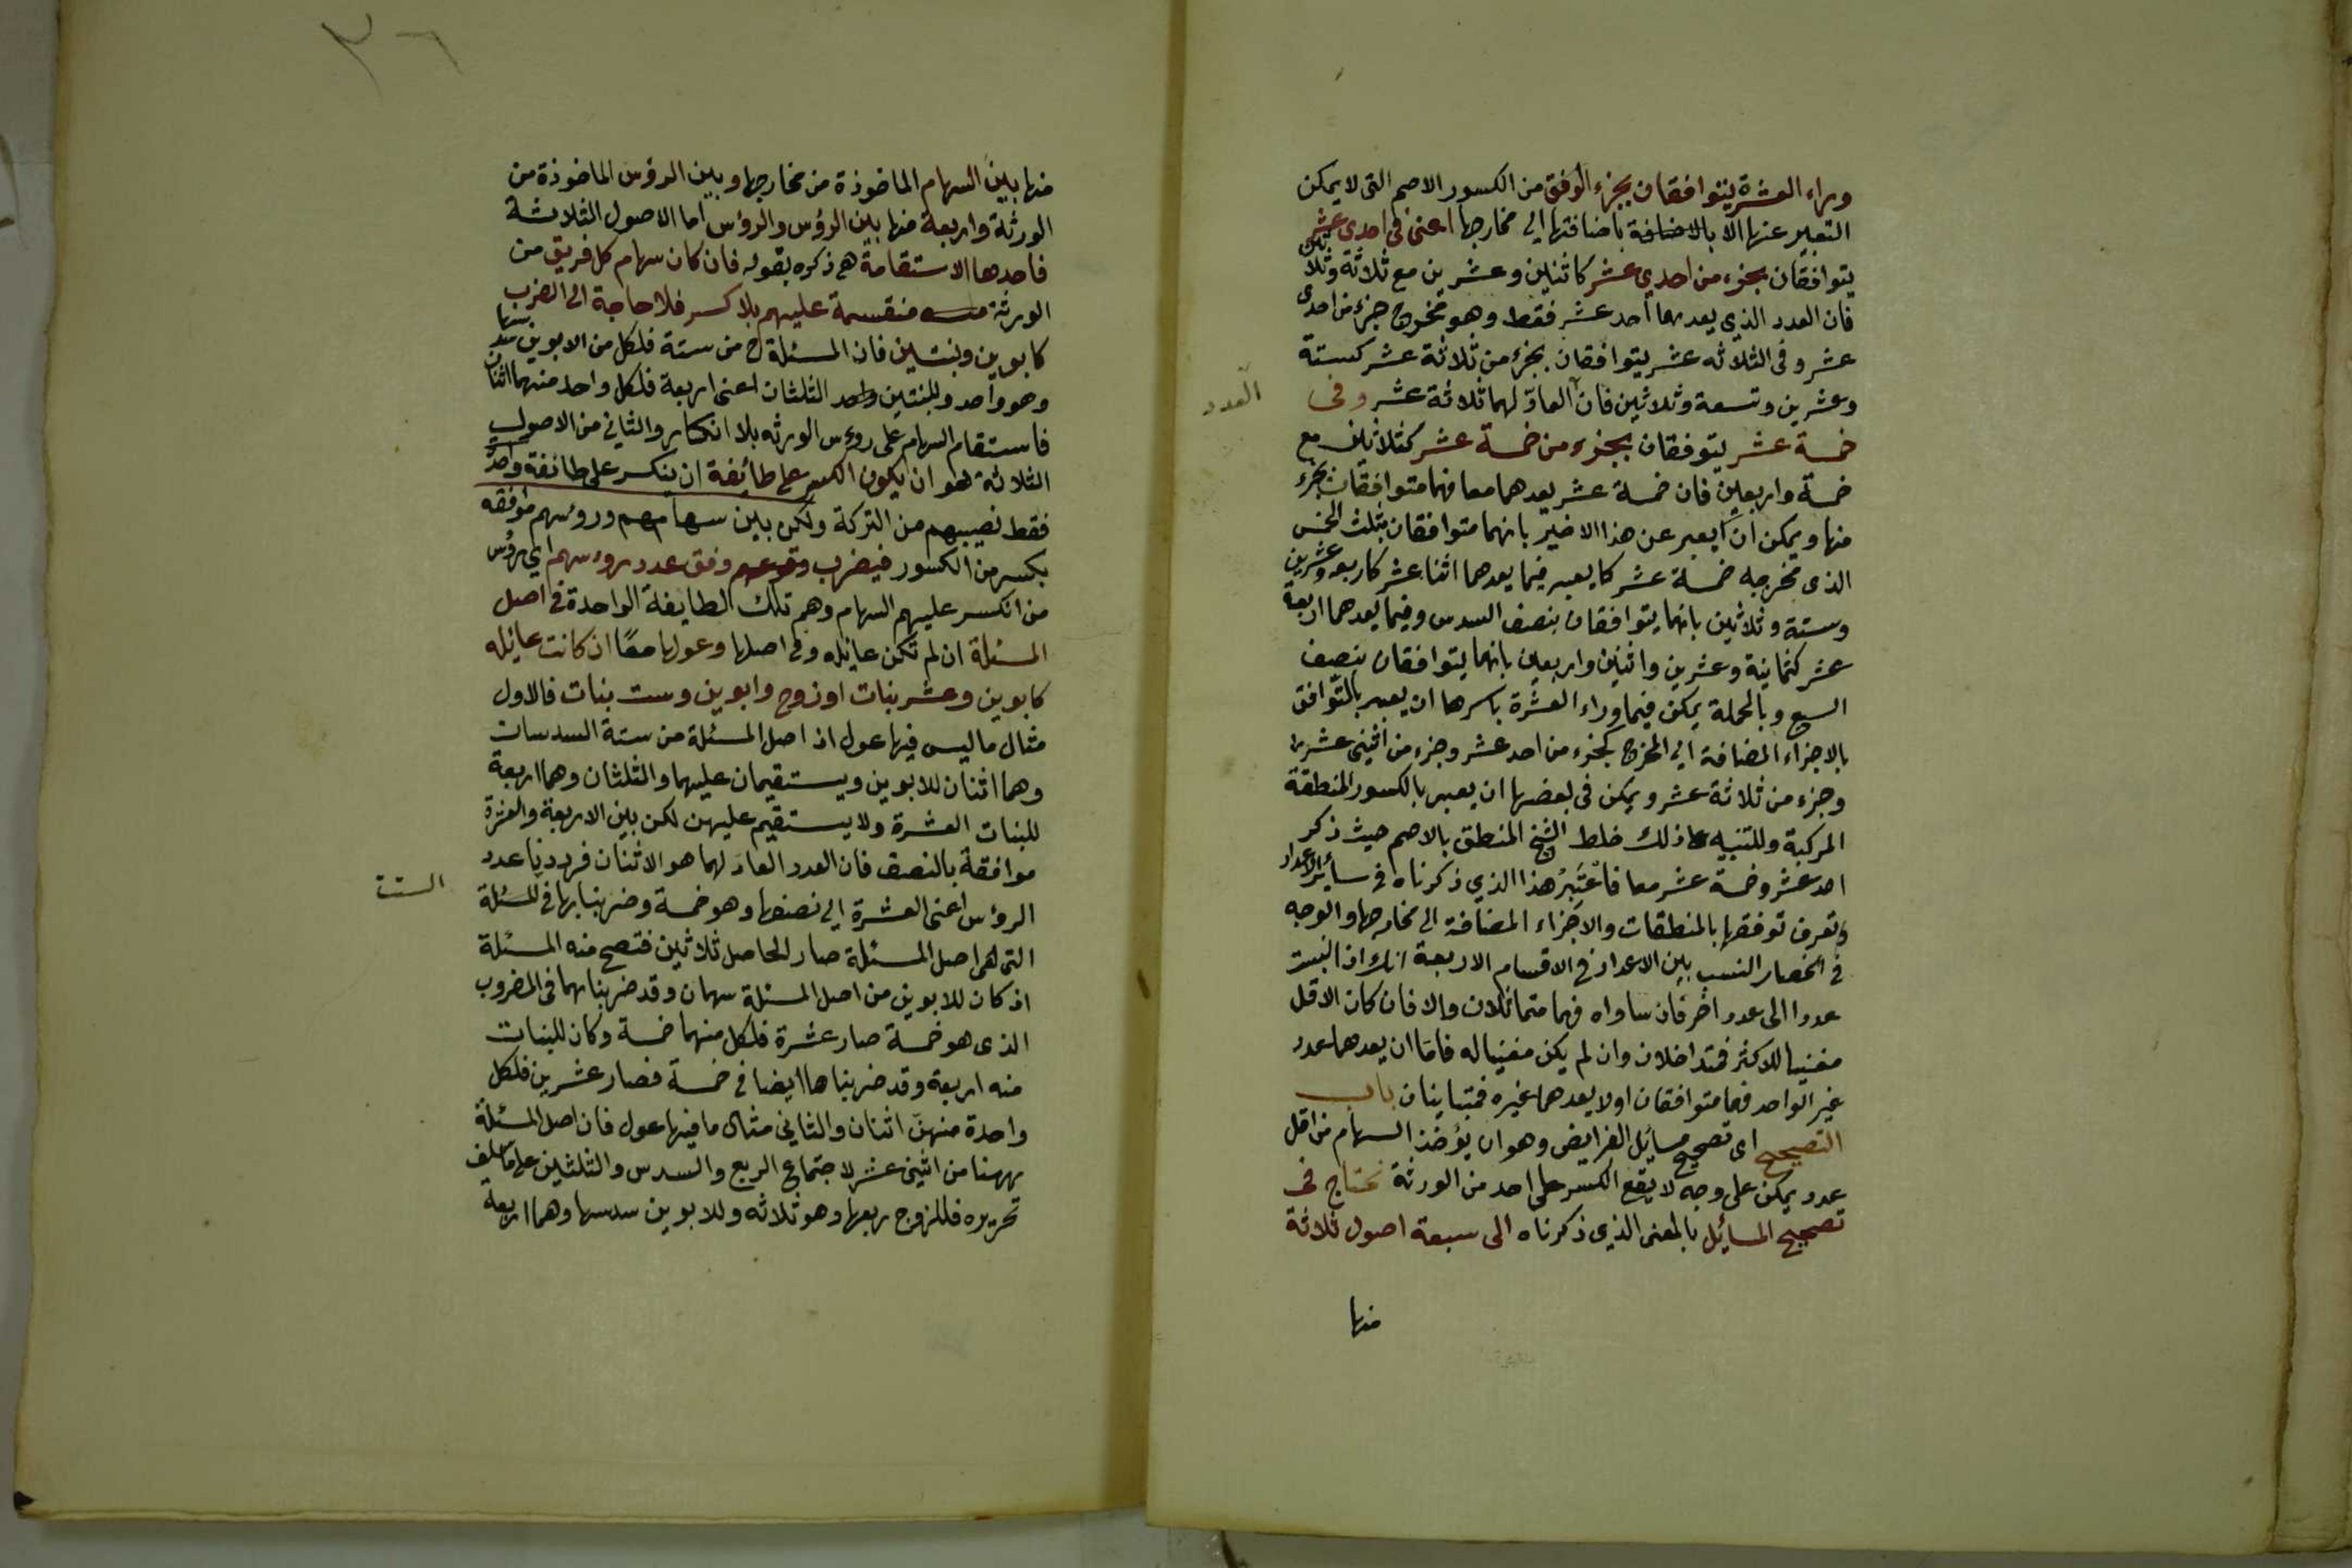 وراء العشرة يتوافقان بجزء الوفق من الكسور الاصم التى لا يمكن
التعبير عنها الا بالاضافة باضافتها الى مخارجها اعنى فى احدى عشر
يتوافقان بجزء من احدي عشر كاثنين وعشرين مع ثلاثة وثلاثين
فان العدد الذي يعدهما احد عشر فقط وهو مخرج جزء من احدى
عشر وفى الثلاثه عشر يتوافقان بجزء من ثلاثة عشر كستة
وعشرين وتسعة وثلاثين فان العادّ لهما ثلاثة عشر وفى
العدد
خمسة عشر يتوفقان بجزء من خمسة عشر كثلاثين مع
خمسة واربعين فان خمسة عشر يعدهما معا فهما متوافقان بجزء
منها ويمكن ان يعبر عن هذا الاخير بانهما متوافقان بثلث الخمس
الذى مخرجه خمسة عشر كما يعبر فيما يعدهما اثنا عشر كاربعه وعشرين
وستة وثلاثين بانهما يتوافقان بنصف السدس وفيما يعدهما اربعة
عشر كثمانية وعشرين واثنين واربعين بانهما يتوافقان بنصف
السبع وبالجملة يمكن فيما وراء العشرة باسرها ان يعبر بالتوافق
بالاجزاء المضافة الى المخرج كجزء من احد عشر وجزء من اثنى عشر
وجزء من ثلاثة عشر ويمكن فى بعضها ان يعبر بالكسور المنطقة
المركبة وللتنبيه على ذلك خلط الشيخ المنطق بالاصم حيث ذكر
احد عشر وخمسة عشر معا فاعتبر هذا الذي ذكرناه فى سائر الاعداد
وتعرف توفقها بالمنطقات والاجزاء المضافة الى مخارجها والوجه
فى انحصار النسب بين الاعداد فى الاقسام الاربعة انك اذا نسبت
عددا الى عدد اخر فان ساواه فهما متماثلان والا فان كان الاقل
مفنيا للاكثر فمتداخلان وان لم يكن مفنيا له فاما ان يعدهما عدد
غير الواحد فهما متوافقان اولا يعدهما غيره فمتباينان باب
التصحيح اى تصحيح مسائل الفرايض وهو ان يؤخذ السهام من اقل
عدد يمكن على وجه لا يقع الكسر على احد من الورثة تحتاج فى
تصحيح المسايل بالمعنى الذى ذكرناه الى سبعة اصول ثلاثة
منها
٣٦
منها بين السهام الماخوذة من مخارجها وبين الرؤس الماخوذة من
الورثة واربعة منها بين الرؤس والرؤس اما الاصول الثلاثة
فاحدها الاستقامة هى ذكره بقوله فان كان سهام كل فريق من
الورثة منقسمة عليهم بلا كسر فلا حاجة الى الضرب
كابوين وبنتين فان المسئلة ح من ستة فلكل من الابوين سدسها
وهو واحد وللبنتين الثلثان اعنى اربعة فلكل واحد منهما اثنان
فاستقام السهام على روءس الورثه بلا انكسار والثانى من الاصول
الثلاثة هو ان يكون الكسر على طائفة ان ينكسر على طائفة واحدة
فقط نصيبهم من التركة ولكن بين سهامهم وروسهم موافقه
بكسر من الكسور فيضرب وفق عدد روءسهم اي رؤس
من انكسر عليهم السهام وهم تلك الطايفة الواحدة فى اصل
المسئلة ان لم تكن عايله وفى اصلها وعولها معًا ان كانت عايله
كابوين وعشر بنات او زوج وابوين وست بنات فالاول
مثال ما ليس فيها عول اذ اصل المسئلة من ستة السدسان
وهما اثنان للابوين ويستقيمان عليهما والثلثان وهما اربعة
للبنات العشرة ولا يستقيم عليهن لكن بين الاربعة والعشرة
موافقة بالنصف فان العدد العاد لهما هو الاثنان فرددنا عدد
الرؤس اعنى العشرة الى نصفها وهو خمسة وضربناها فى المسئلة
الستة
التى هى اصل المسئلة صار الحاصل ثلاثين فتصح منه المسئلة
اذ كان للابوين من اصل المسئلة سهمان وقد ضربناهما فى المضروب
الذى هو خمسة صار عشرة فلكل منهما خمسة وكان للبنات
منه اربعة وقد ضربناها ايضا فى خمسة فصار عشرين فلكل
واحدة منهن اثنان والثانى مثال ما فيها عول فان اصل المسئلة
ههنا من اثنى عشر لاجتماع الربع والسدس والثلثين على ما سلف
تحريره فللزوج ربعها وهو ثلاثه وللابوين سدسها وهما اربعة